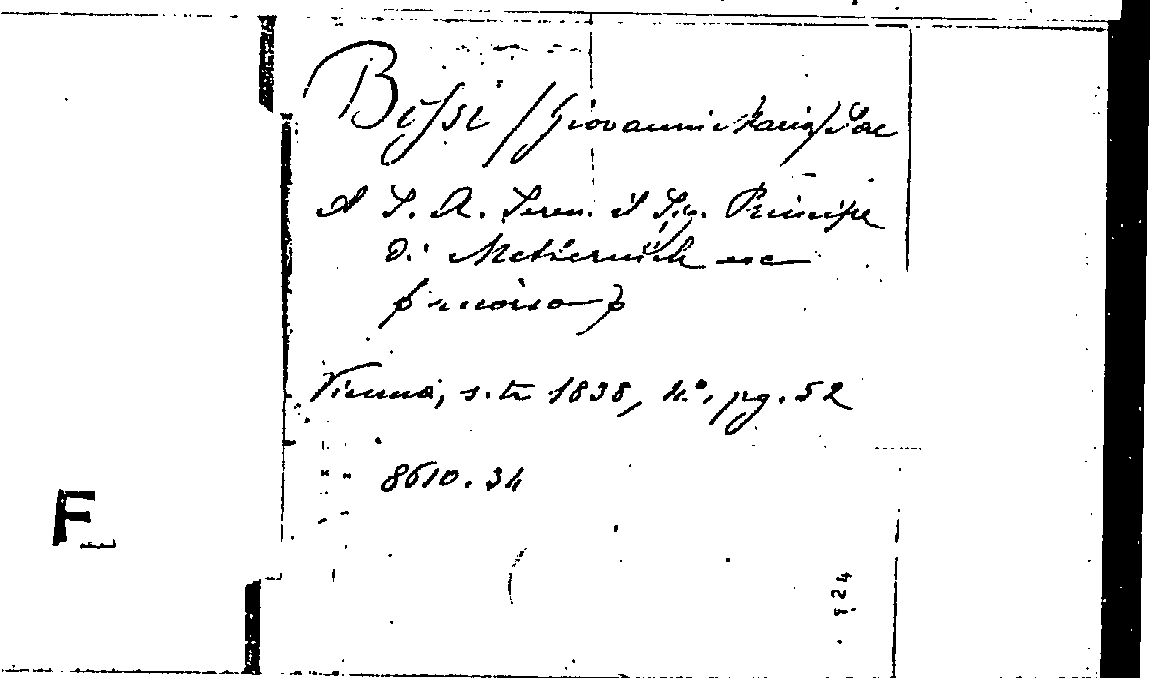 Bossi (Giovanni Maria) Sac
A S. A. Seren. il Sig. Principe
di Metternich ecc
Vienna, s. tr 1838, 4.°, pg. 52
" " 8610.34
F
924